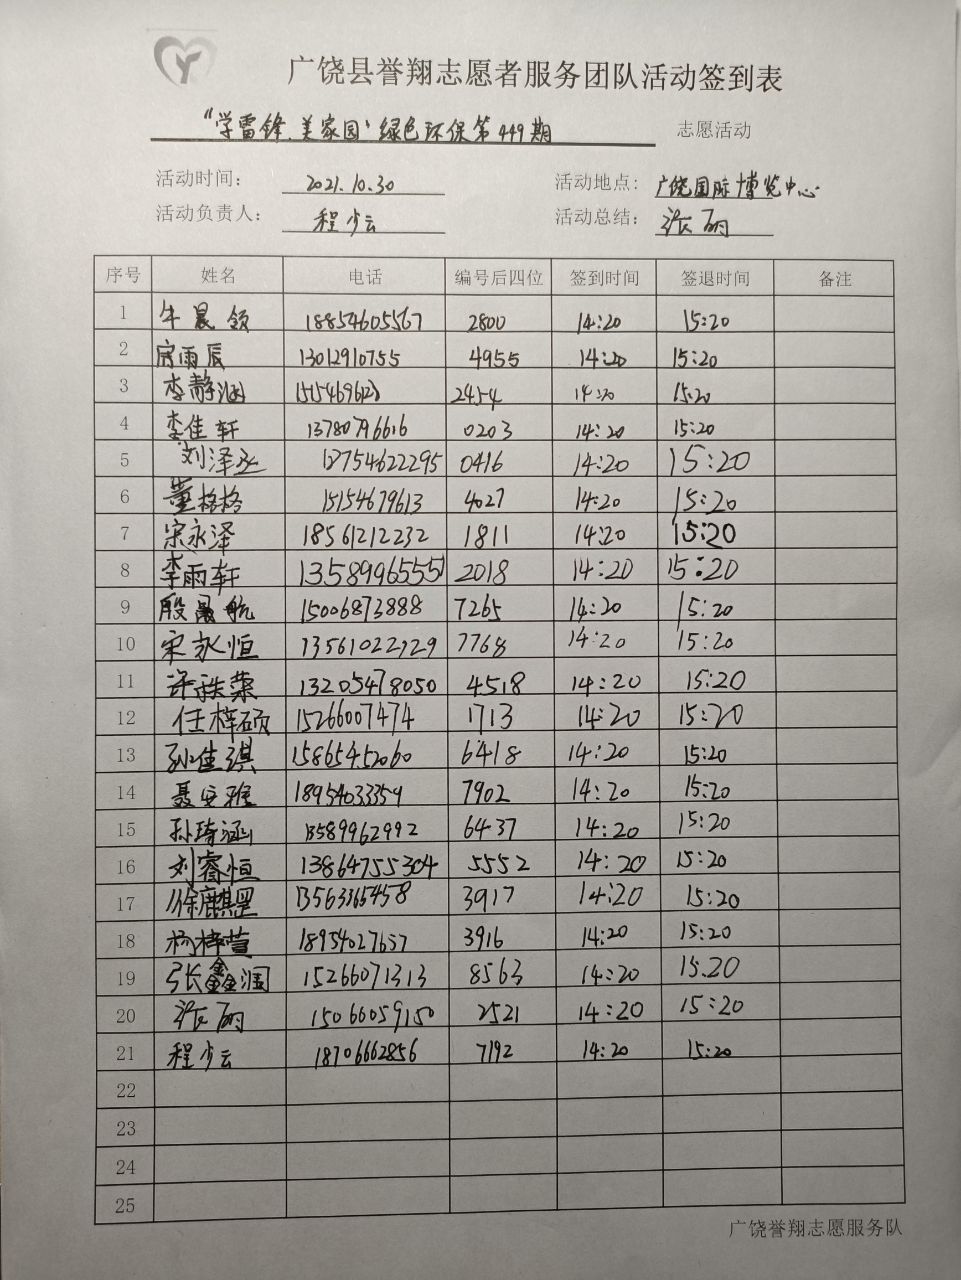 广饶县誉翔志愿者服务团队活动签到表
“学雷锋、美家园”绿色环保第449期 志愿活动
活动时间： 2021.10.30 活动地点： 广饶国际博览中心
活动负责人： 程少云 活动总结： 张丽
序号 姓名 电话 编号后四位 签到时间 签退时间 备注
1 牛晨领 18854605567 2800 14:20 15:20
2 房雨辰 13012910755 4955 14:20 15:20
3 李静涵 2454 14:20 15:20
4 李佳轩 13780796616 0203 14:20 15:20
5 刘泽丞 12754622295 0416 14:20 15:20
6 董格格 15154679613 4027 14:20 15:20
7 宋永泽 18561212232 1811 14:20 15:20
8 李雨轩 13589965551 2018 14:20 15:20
9 殷晟航 15006873888 7265 14:20 15:20
10 宋永恒 13561022929 7768 14:20 15:20
11 许轶荣 13205478050 4518 14:20 15:20
12 任梓硕 15266007474 1713 14:20 15:20
13 孙佳琪 15865452060 6418 14:20 15:20
14 聂安雅 18954033359 7902 14:20 15:20
15 孙琦涵 13589962992 6437 14:20 15:20
16 刘睿恒 13864755304 5552 14:20 15:20
17 徐麒罡 13563365458 3917 14:20 15:20
18 杨梓萱 18954027657 3916 14:20 15:20
19 张鑫润 15266071313 8563 14:20 15:20
20 张丽 15066059150 2521 14:20 15:20
21 程少云 18706662856 7192 14:20 15:20
22
23
24
25
广饶誉翔志愿服务队